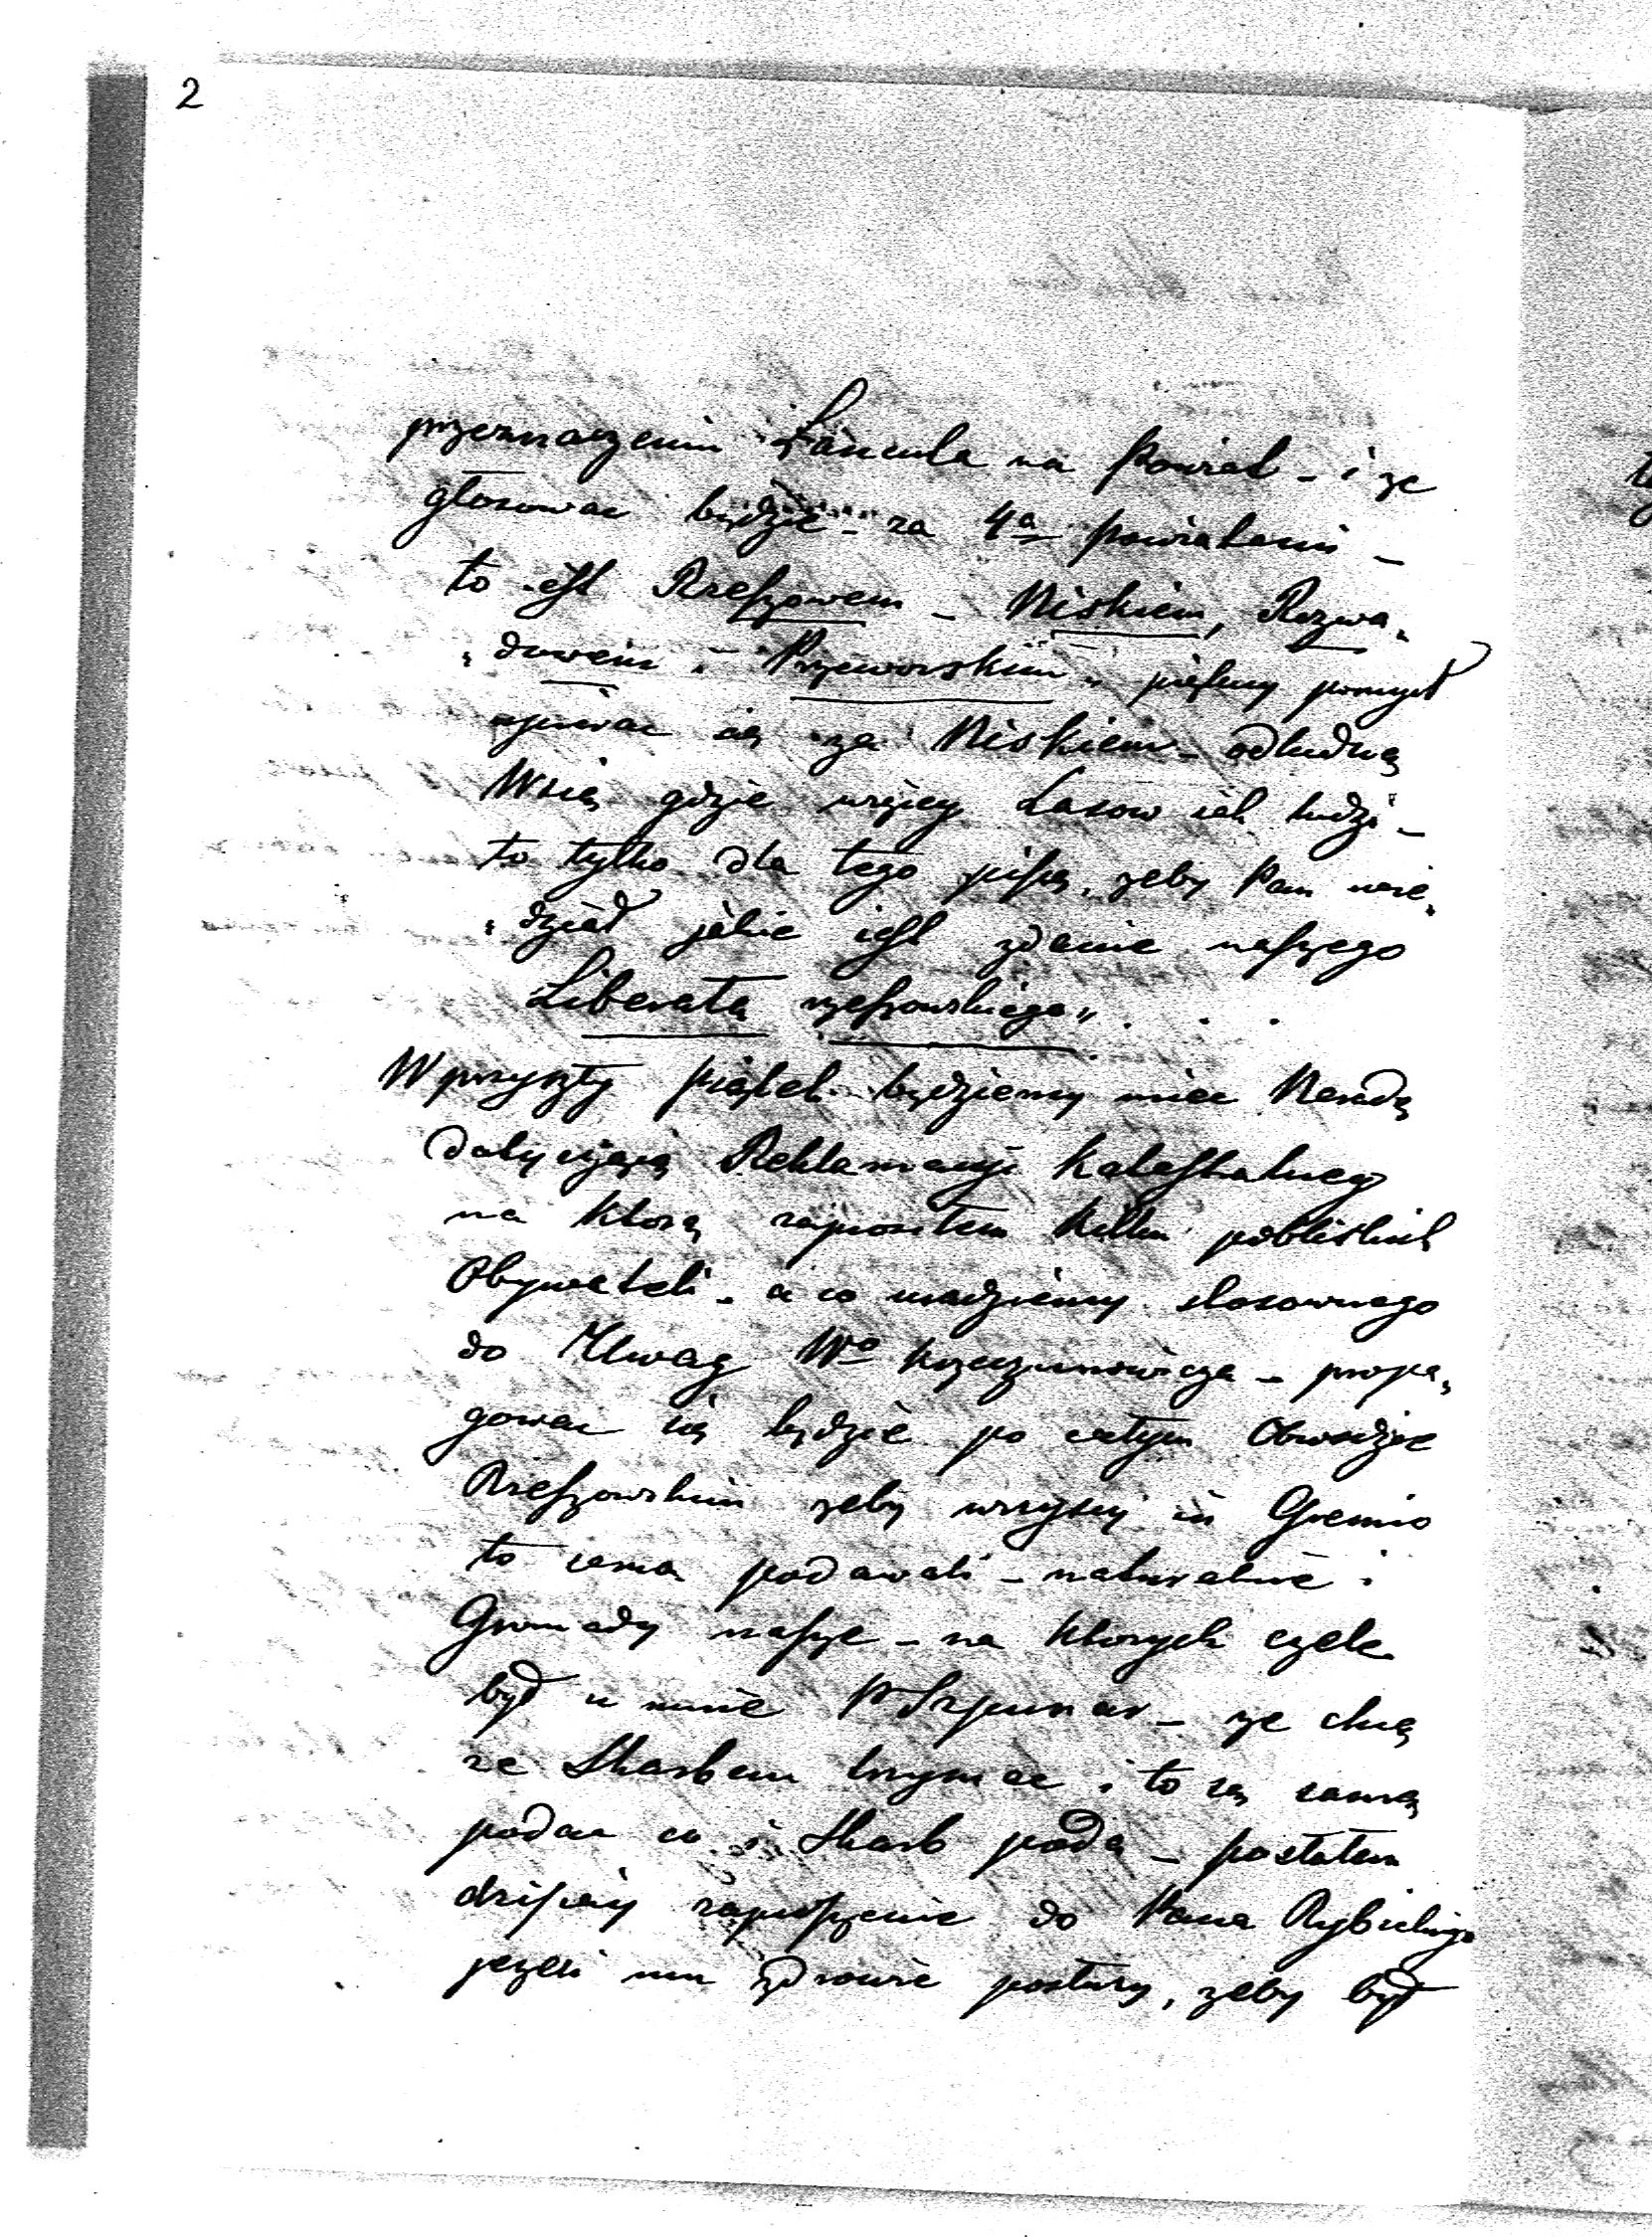 2
przeznaczeniu Łańcuta na Powiat – i że
głosować będzie – za 4ª powiatami –
to jest Rzeszowem – Niskiem, Rozwa„
„dowem i Przeworskim „ piękny pomysł
ujmować się za Niskiem – odludną
Wsią gdzie więcej Lasów jak ludzi –
to tylko dla tego piszę, żeby Pan wie„
„dział jakie jest zdanie naszego
Liberała rzeszowskiego„ . . .
W przyszły piątek będziemy mieć Naradę
dotyczącą Reklamacji Katastralnej
na którą zaprosiłem kilku pobliskich
Obywateli – a co uradziemy stosownego
do Uwag Wº Krzeczunowicza – propa„
gować się będzie po całym Obwodzie
Rzeszowskim żeby wszyscy in Gremio
to samo podawali – naturalnie i
Gromady nasze – na których czele
był u mnie P Szpunar – że chcą
ze Skarbem trzymać i to są samą
podać co i Skarb poda – posłałem
dzisiaj zaproszenie do Pana Rybickiego
jeżeli mu zdrowie posłuży, żeby był